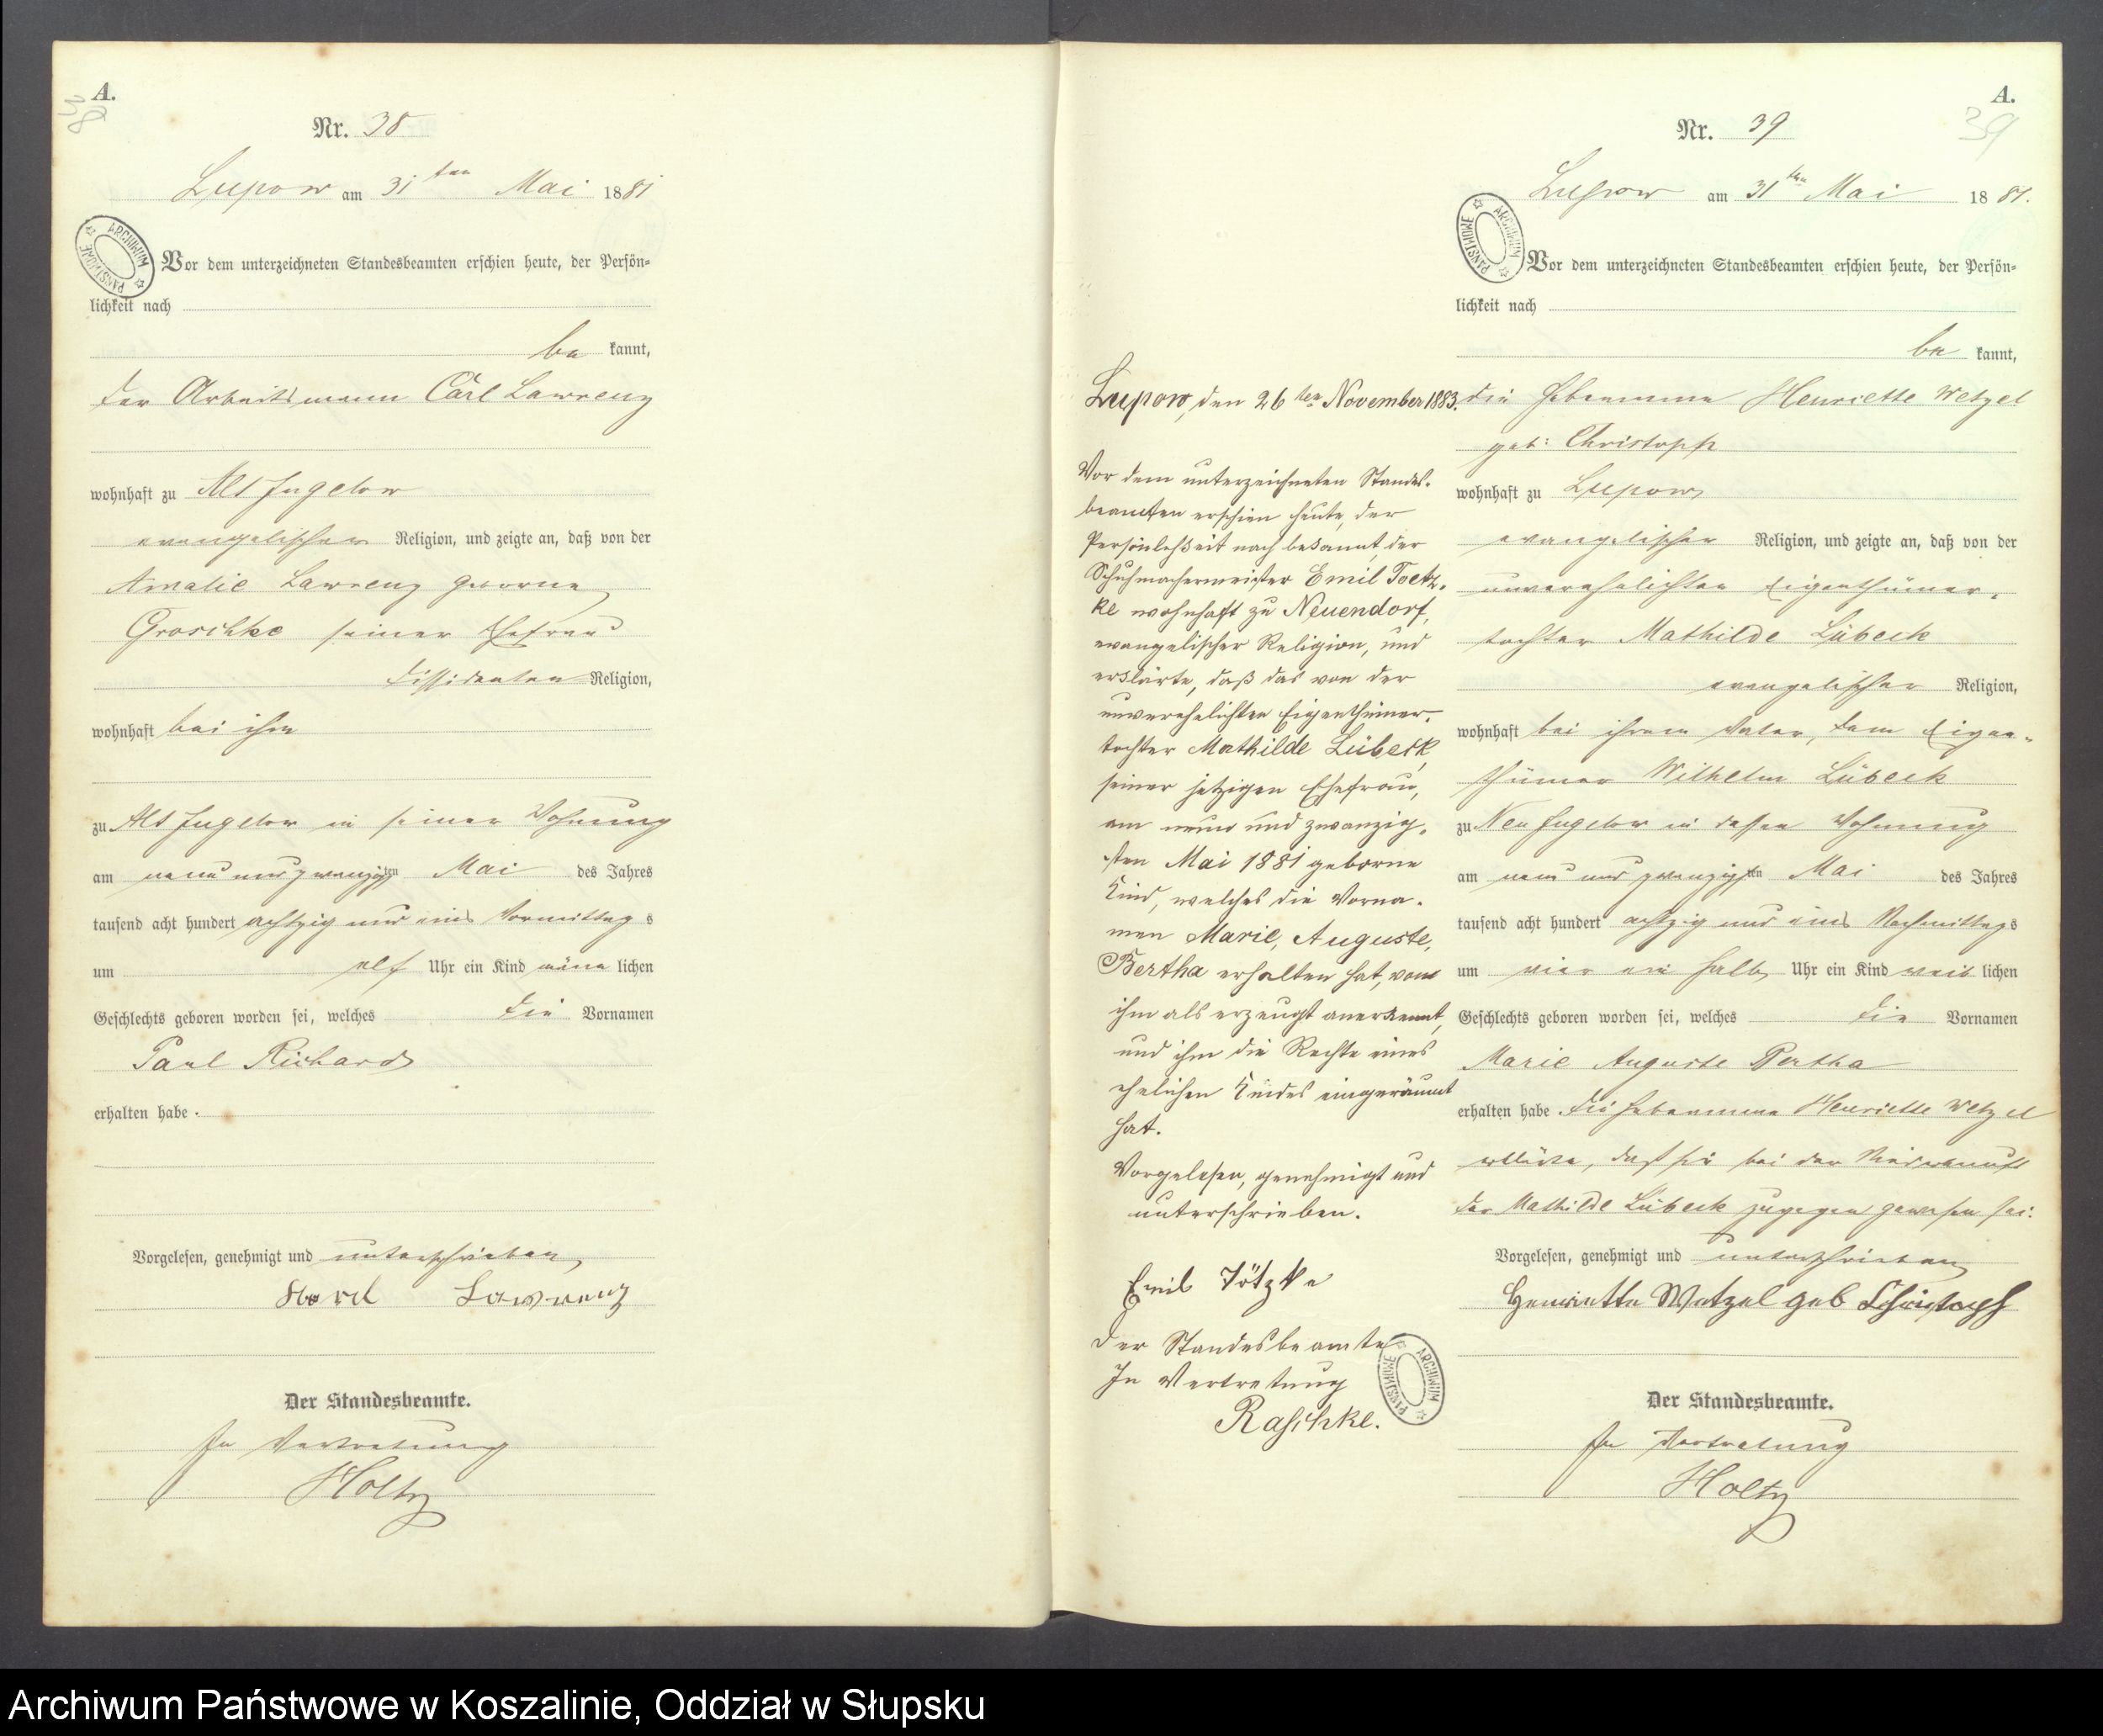 A.
38
Nr. 38
Lupow am 31 ten Mai 1881
ARCHIWUM PAŃSTWOWE
Vor dem unterzeichneten Standesbeamten erschien heute, der Persön-
lichkeit nach
be kannt,
der Arbeitsmann Carl Lawrenz
wohnhaft zu Alt Jugelow
evangelischer Religion, und zeigte an, daß von der
Amalie Lawrenz geborne
Groschke seiner Ehefrau
Dissidenten Religion,
wohnhaft bei ihm
zu Alt Jugelow in seiner Wohnung
am neun und zwanzigsten Mai des Jahres
tausend acht hundert achtzig und eins Vormittags
um elf Uhr ein Kind männlichen
Geschlechts geboren worden sei, welches die Vornamen
Paul Richard
erhalten habe.
Vorgelesen, genehmigt und unterschrieben
Lawrenz
Der Standesbeamte.
In Vertretung
Holtz
A.
39
Nr. 39
Lupow am 31 ten Mai 1881.
ARCHIWUM PAŃSTWOWE
Vor dem unterzeichneten Standesbeamten erschien heute, der Persön-
lichkeit nach
be kannt,
die Hebamme Henriette Wetzel
geb: Christoph
wohnhaft zu Lupow
evangelischer Religion, und zeigte an, daß von der
unverehelichten Eigenthümer-
tochter Mathilde Lübeck
evangelischer Religion,
wohnhaft bei ihrem Vater, dem Eigen-
thümer Wilhelm Lübeck
zu Neu Jugelow in dessen Wohnung
am neun und zwanzigsten Mai des Jahres
tausend acht hundert achtzig und eins Nachmittags
um vier ein halb Uhr ein Kind weiblichen
Geschlechts geboren worden sei, welches die Vornamen
Marie Auguste Bertha
erhalten habe die Hebamme Henriette Wetzel
erklärte, daß sie bei der Niederkunft
der Mathilde Lübeck zugegen gewesen sei.
Vorgelesen, genehmigt und unterschrieben
Henriette Wetzel geb Christoph
Der Standesbeamte.
In Vertretung
Holtz
Lupow, den 26 ten November 1883.
Vor dem unterzeichneten Standes-
beamten erschien heute, der
Persönlichkeit nach bekannt, der
Schuhmachermeister Emil Toetz-
ke wohnhaft zu Neuendorf,
evangelischer Religion, und
erklärte, daß das von der
unverehelichten Eigenthümer-
tochter Mathilde Lübeck,
seiner jetzigen Ehefrau,
am neun und zwanzig-
sten Mai 1881 geborne
Kind, welches die Vorna-
men Marie, Auguste,
Bertha erhalten hat, von
ihm als erzeugt anerkannt,
und ihm die Rechte eines
ehelichen Kindes eingeräumt
hat.
Vorgelesen, genehmigt und
unterschrieben.
Emil Tötzke
Der Standesbeamte
In Vertretung
Raschke.
ARCHIWUM PAŃSTWOWE
Archiwum Państwowe w Koszalinie, Oddział w Słupsku